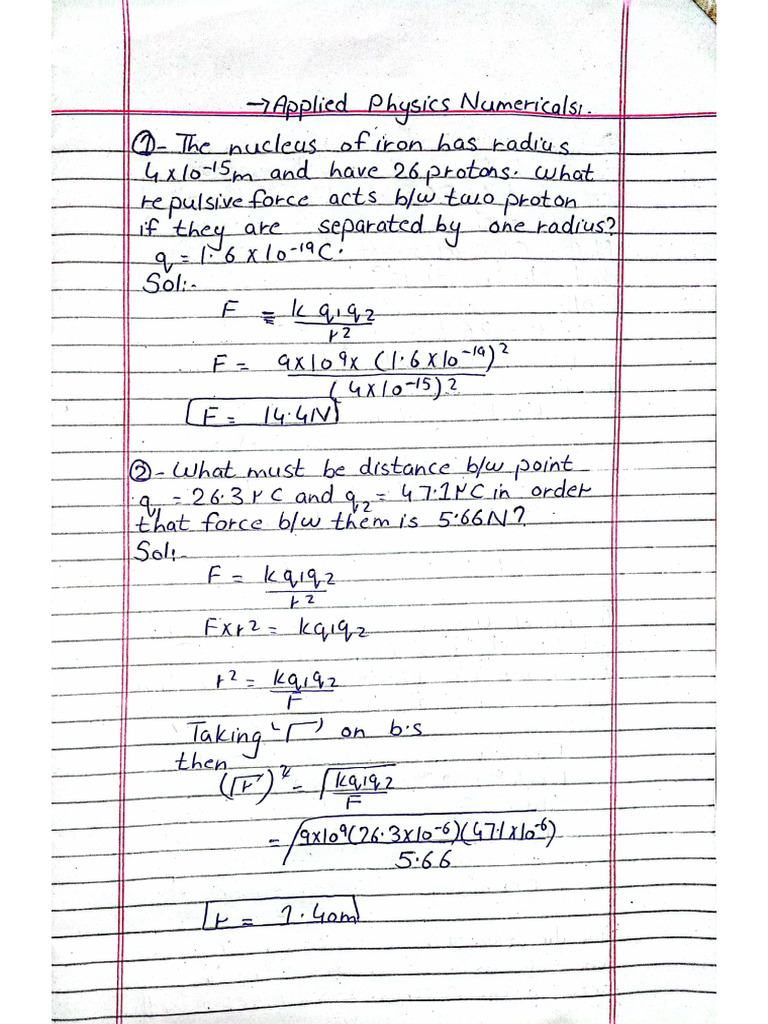 →Applied Physics Numericals:.
①- The nucleus of iron has radius
4x10⁻¹⁵m and have 26 protons. What
repulsive force acts b/w two proton
if they are separated by one radius?
q = 1.6 x 10⁻¹⁹C.
Sol:-
F = k q₁q₂
r²
F = 9x10⁹x (1.6x10⁻¹⁹)²
(4x10⁻¹⁵)²
F = 14.4N
②- What must be distance b/w point
q₁ = 26.3 μC and q₂ = 47.1μC in order
that force b/w them is 5.66N?
Sol:-
F = kq₁q₂
r²
Fxr² = kq₁q₂
r² = kq₁q₂
F
Taking '√' on b.s
then
(√r)² = √kq₁q₂
F
= √9x10⁹(26.3x10⁻⁶)(47.1x10⁻⁶)
5.66
r = 1.40m